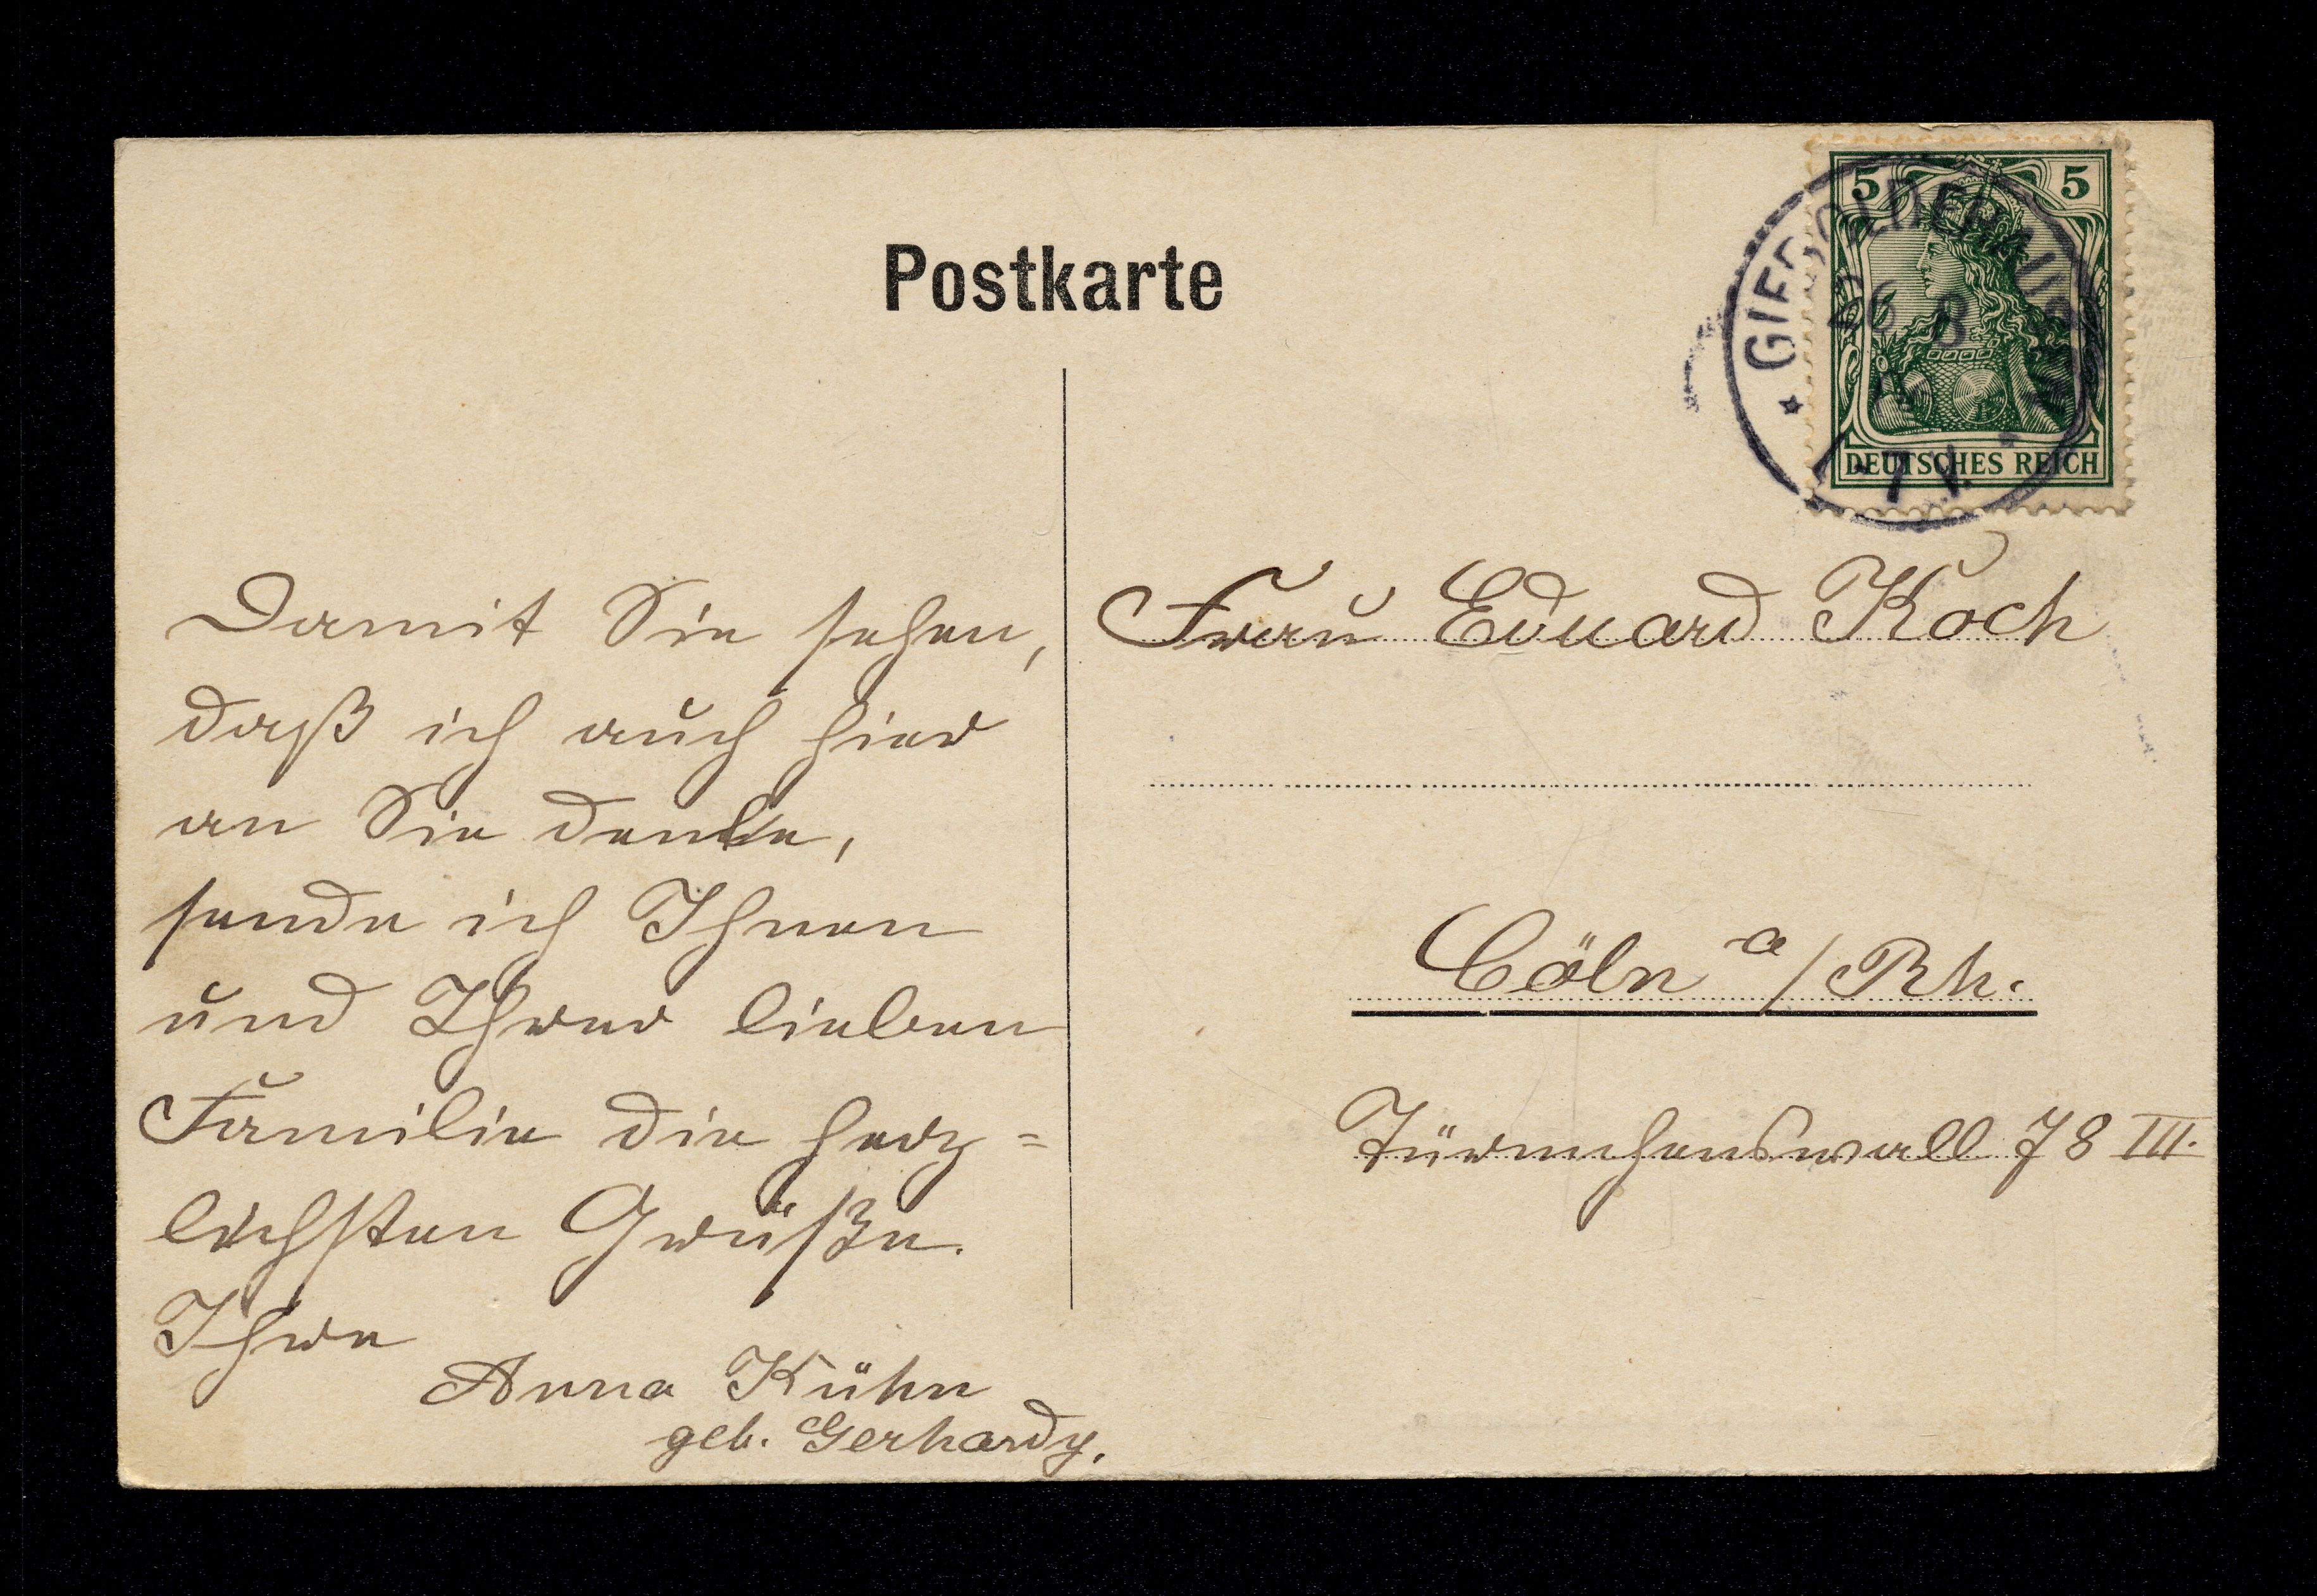 Postkarte
5 5
DEUTSCHES REICH
26 8
Damit Sie sehen,
daß ich auch hier
an Sie denke,
sende ich Ihnen
und Ihrer lieben
Familie die herz=
lichsten Grüße.
Ihre
Anna Kühn
geb. Gerhardy.
Frau Eduard Koch
Cöln a/Rh.
Türmchenswall 78 III.